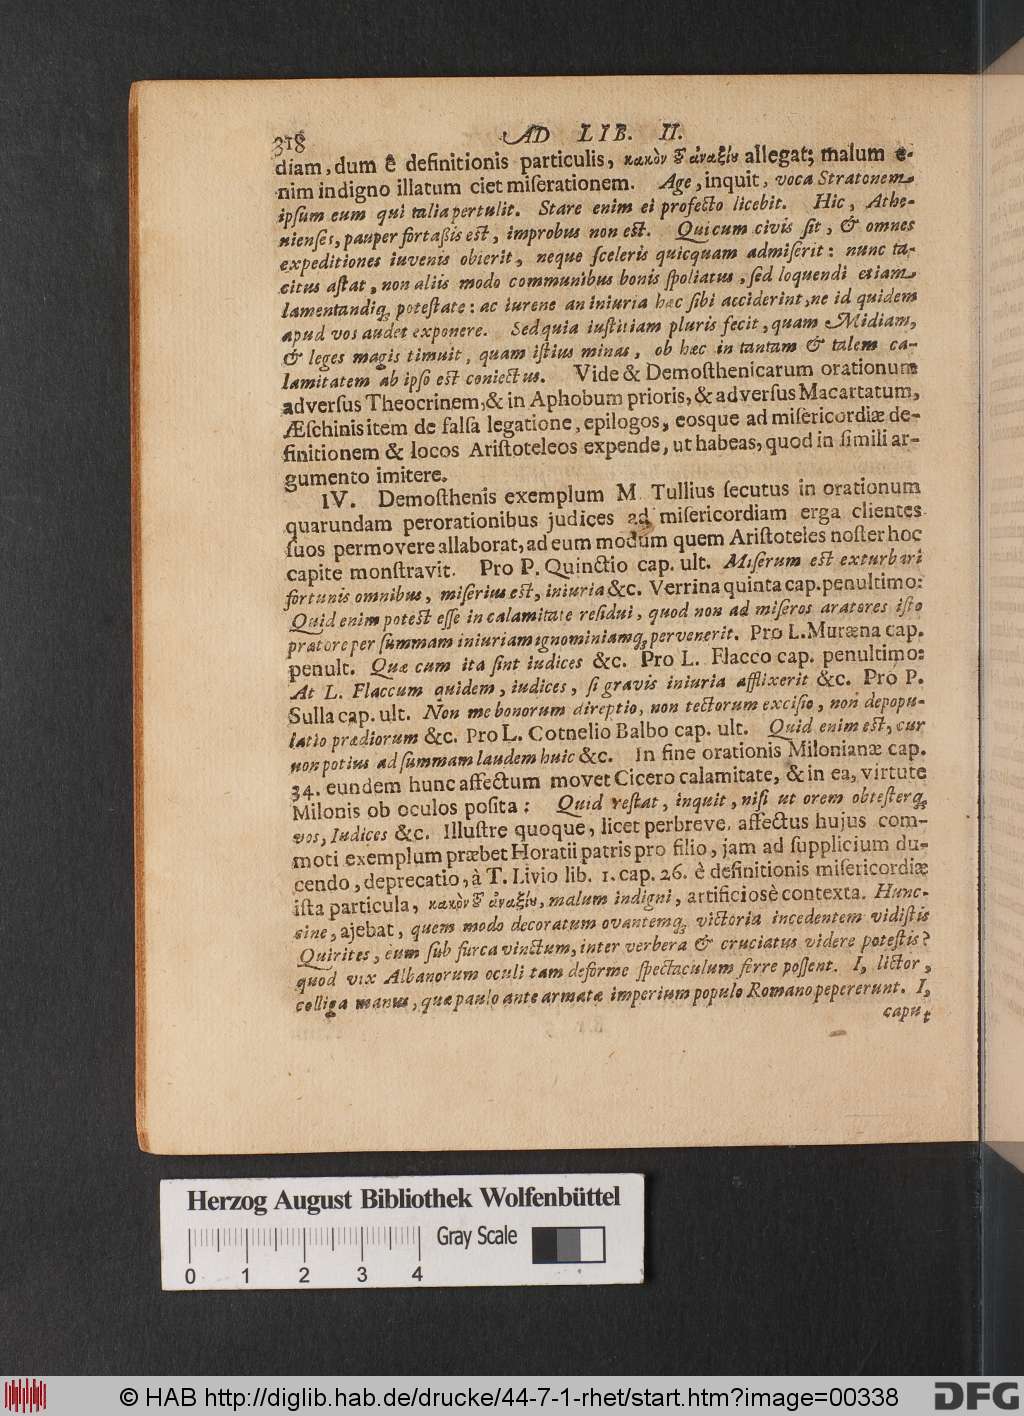 318 AD LIB. II.
diam, dum è definitionis particulis, κακὸν τ͂ ἀναξίυ allegat; malum e-
nim indigno illatum ciet miserationem. Age, inquit, voca Stratonem
ipsum eum qui talia pertulit. Stare enim ei profecto licebit. Hic, Athe-
nienses, pauper fortaßis est, improbus non est. Qui cum civis sit, & omnes
expeditiones iuvenis obierit, neque sceleris quicquam admiserit: nunc ta-
citus astat, non aliis modo communibus bonis spoliatus, sed loquendi etiam
lamentandiq; potestate: ac iurene an iniuria hæc sibi acciderint, ne id quidem
apud vos audet exponere. Sed quia iustitiam pluris fecit, quam Midiam,
& leges magis timuit, quam istius minas, ob hæc in tantam & talem ca-
lamitatem ab ipso est coniectus. Vide & Demosthenicarum orationum
adversus Theocrinem, & in Aphobum prioris, & adversus Macartatum,
Æschinis item de falsa legatione, epilogos, eosque ad misericordiæ de-
finitionem & locos Aristoteleos expende, ut habeas, quod in simili ar-
gumento imitere.
IV. Demosthenis exemplum M. Tullius secutus in orationum
quarundam perorationibus judices ad misericordiam erga clientes
suos permovere allaborat, ad eum modum quem Aristoteles noster hoc
capite monstravit. Pro P. Quinctio cap. ult. Miserum est exturbari
fortunis omnibus, miserius est, iniuria &c. Verrina quinta cap. penultimo:
Quid enim potest esse in calamitate residui, quod non ad miseros aratores isto
prætore per summam iniuriam ignominiamq; pervenerit. Pro L. Muræna cap.
penult. Quæ cum ita sint iudices &c. Pro L. Flacco cap. penultimo:
At L. Flaccum quidem, iudices, si gravis iniuria afflixerit &c. Pro P.
Sulla cap. ult. Non me bonorum direptio, non tectorum excisio, non depopu-
latio prædiorum &c. Pro L. Cotnelio Balbo cap. ult. Quid enim est, cur
non potius ad summam laudem huic &c. In fine orationis Milonianæ cap.
34. eundem hunc affectum movet Cicero calamitate, & in ea, virtute
Milonis ob oculos posita: Quid restat, inquit, nisi ut orem obtesterq;
vos, Iudices &c. Illustre quoque, licet perbreve, affectus hujus com-
moti exemplum præbet Horatii patris pro filio, jam ad supplicium du-
cendo, deprecatio, à T. Livio lib. 1. cap. 26. è definitionis misericordiæ
ista particula, κακὸν τ͂ ἀναξίυ, malum indigni, artificiosè contexta. Hunc-
cine, ajebat, quem modo decoratum ovantemq; victoria incedentem vidistis
Quirites, eum sub furca vinctum, inter verbera & cruciatus videre potestis?
quod vix Albanorum oculi tam deforme spectaculum ferre possent. I, lictor,
colliga manus, quæ paulo ante armatæ imperium populo Romano pepererunt. I,
caput
Herzog August Bibliothek Wolfenbüttel
Gray Scale
0 1 2 3 4
© HAB http://diglib.hab.de/drucke/44-7-1-rhet/start.htm?image=00338
DFG